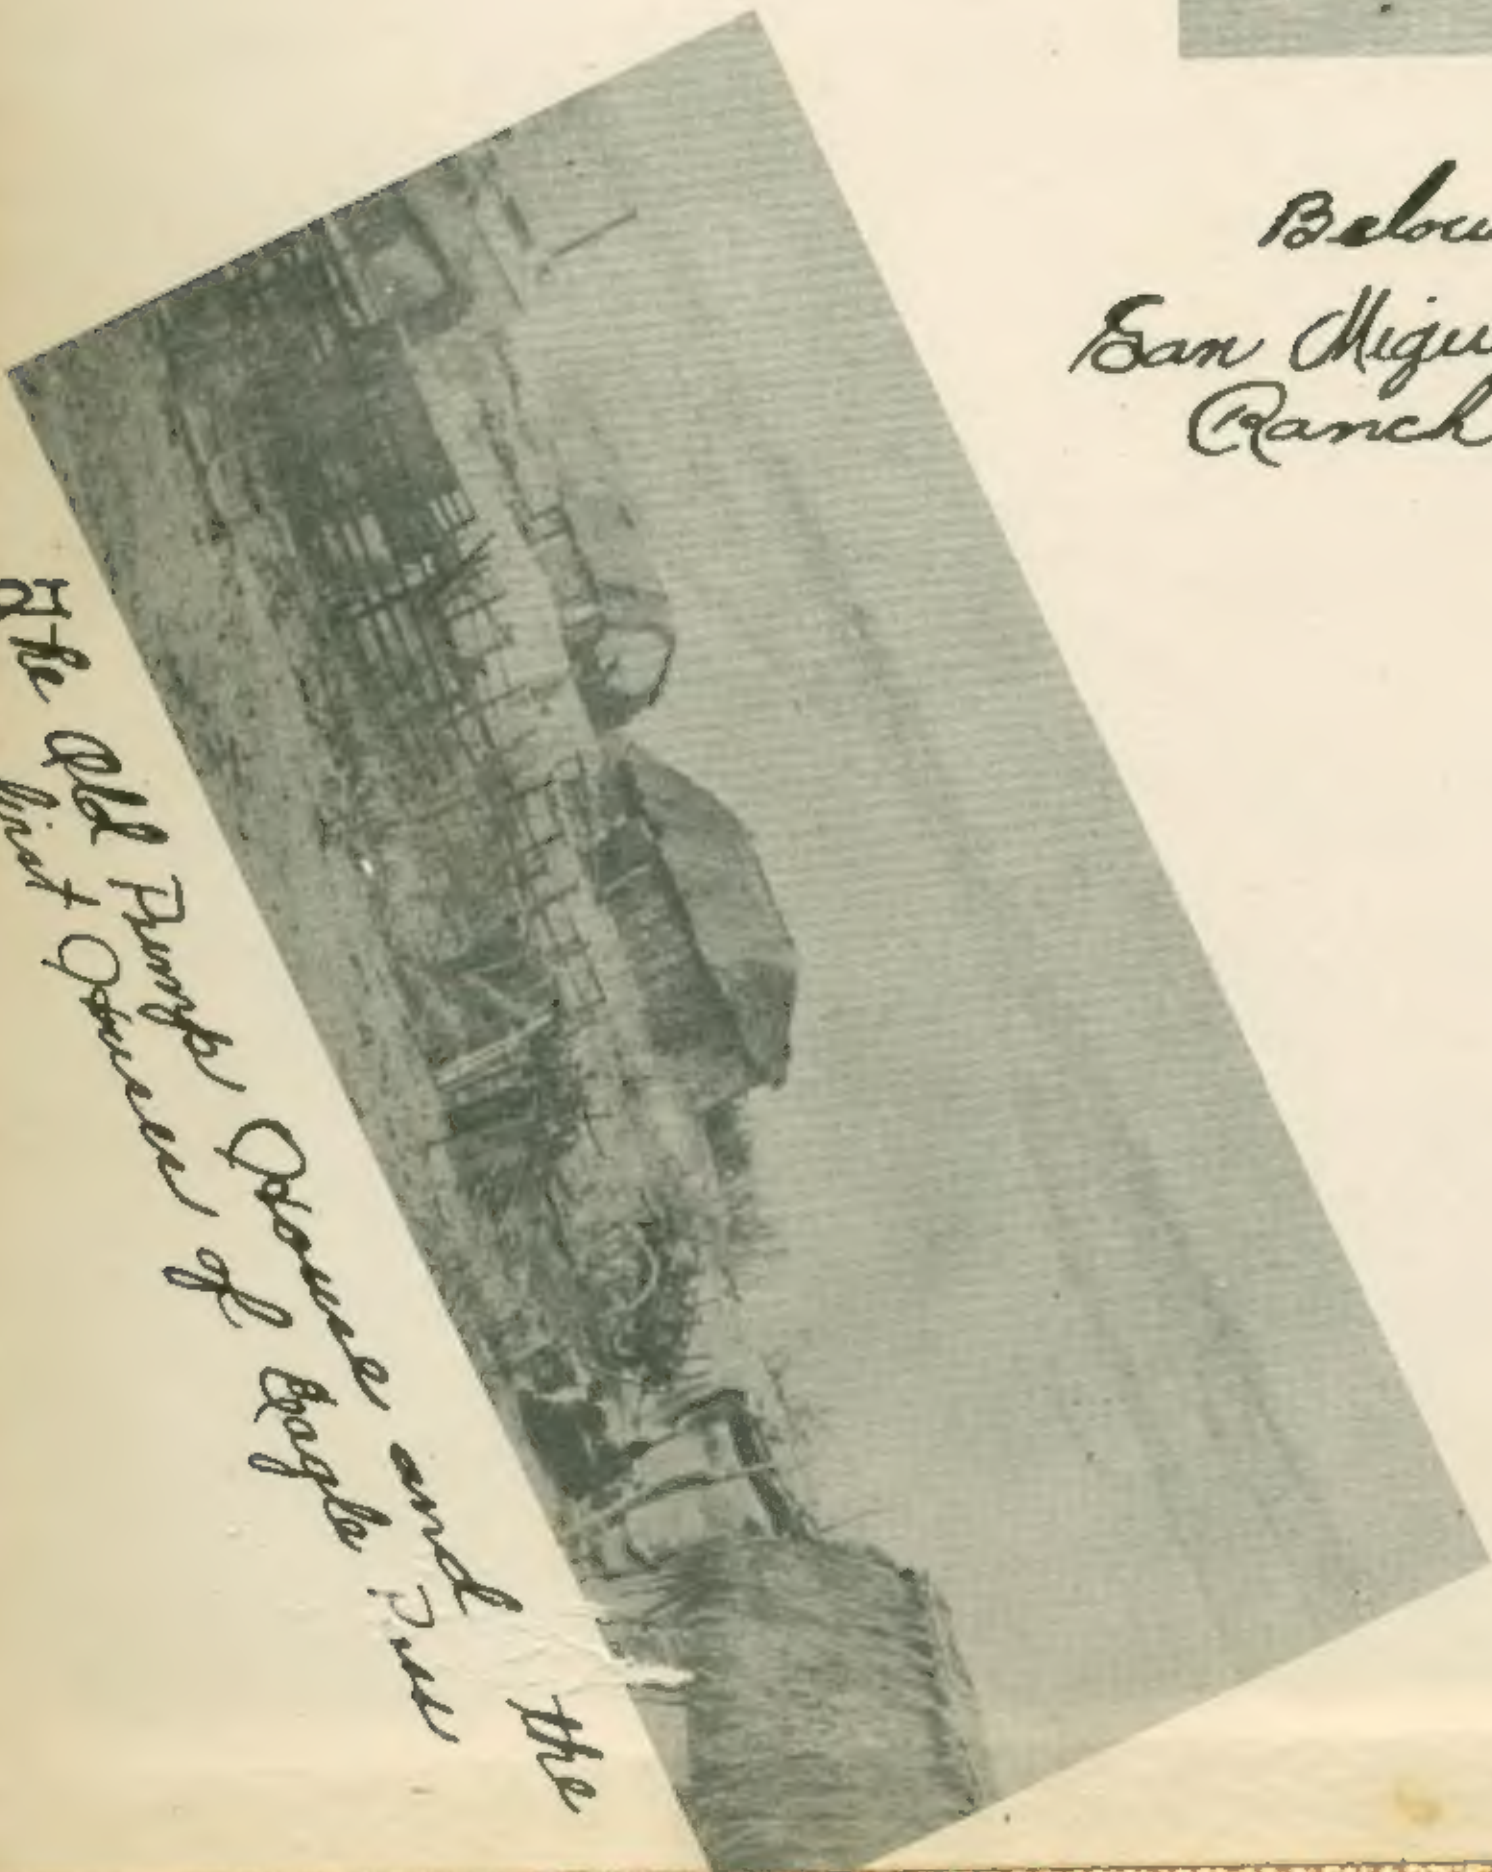 Below
San Migu
Ranch
The Old Pump House and the
first Houses of Eagle Pass